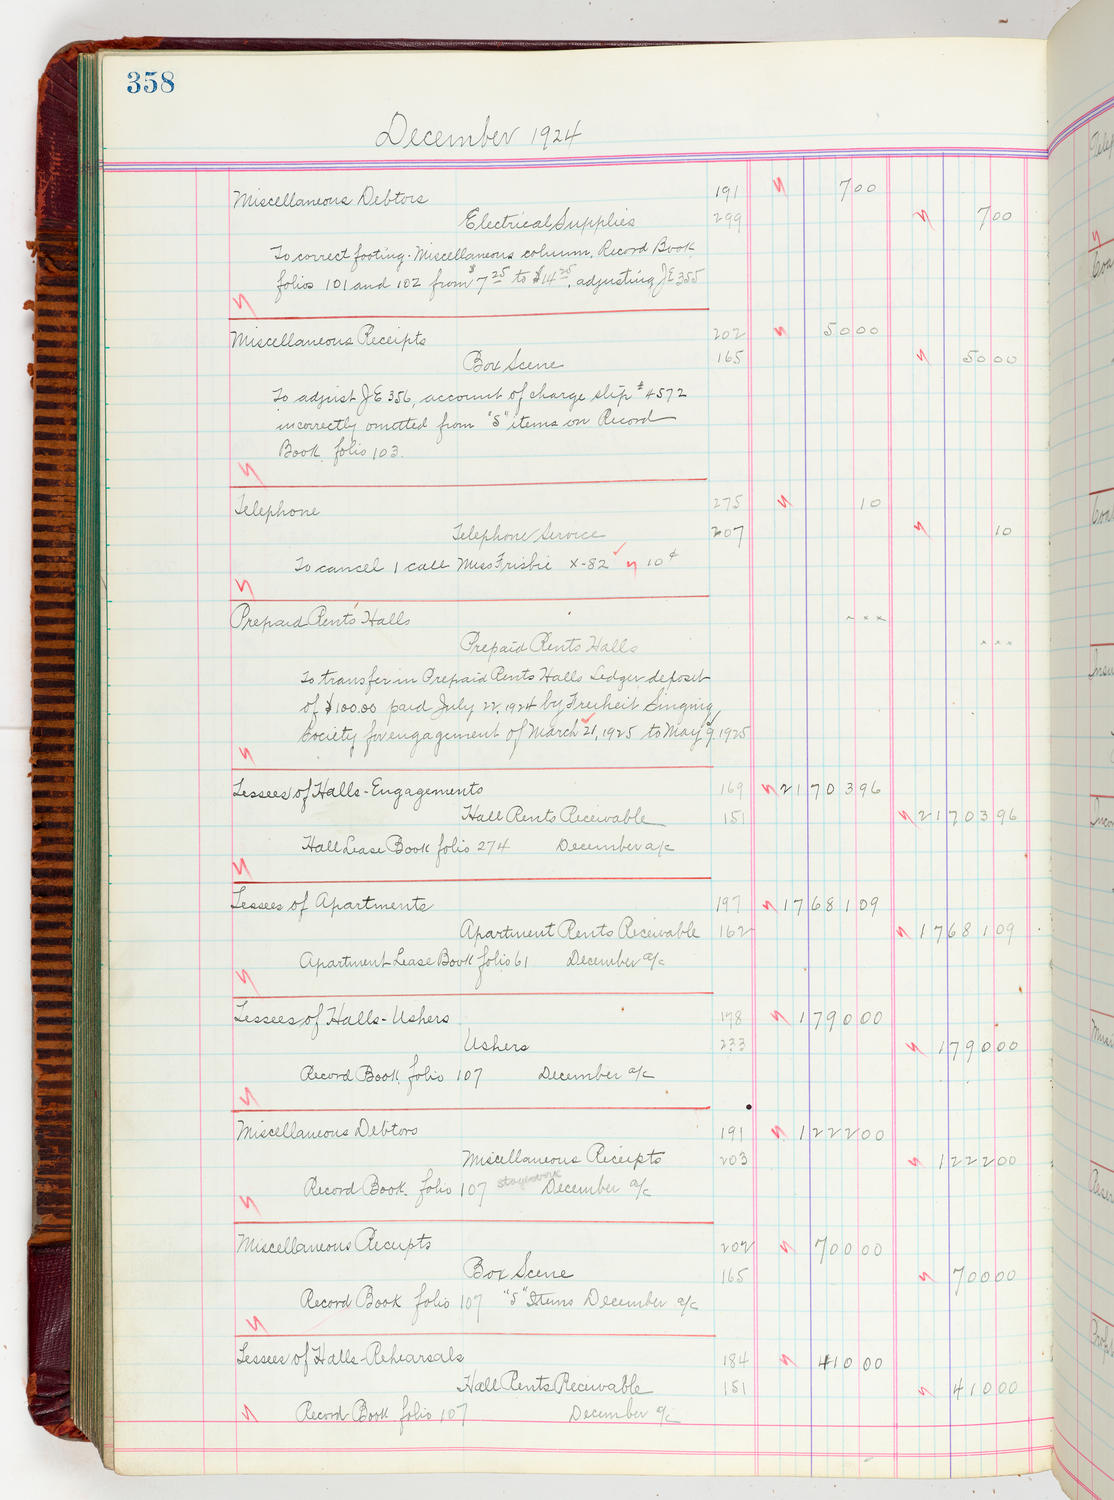 358
December 1924
Miscellaneous Debtors 191 700
Electrical Supplies 299 700
To correct footing Miscellaneous column, Record Book
folios 101 and 102 from $7 25 to $14 25, adjusting JE 355
Miscellaneous Receipts 202 5000
Box Scene 165 5000
To adjust JE 356, account of charge slip #4572
incorrectly omitted from "S" items on Record
Book folio 103.
Telephone 275 10
Telephone Service 207 10
To cancel 1 call Miss Frisbie X-82 10¢
Prepaid Rents Halls xxx
Prepaid Rents Halls xxx
To transfer in Prepaid Rents Halls Ledger, deposit
of $100.00 paid July 22, 1924 by Freiheit Singing
Society for engagement of March 21, 1925 to May 9, 1925
Lessees of Halls-Engagements 169 2170396
Hall Rents Receivable 151 2170396
Hall Lease Book folio 274 December a/c
Lessees of Apartments 197 1768109
Apartment Rents Receivable 162 1768109
Apartment Lease Book folio 61 December a/c
Lessees of Halls-Ushers 178 179000
Ushers 233 179000
Record Book folio 107 December a/c
Miscellaneous Debtors 191 122200
Miscellaneous Receipts 203 122200
Record Book folio 107 December a/c
Miscellaneous Receipts 202 70000
Box Scene 165 70000
Record Book folio 107 "S" Items December a/c
Lessees of Halls-Rehearsals 184 41000
Hall Rents Receivable 151 41000
Record Book folio 107 December a/c